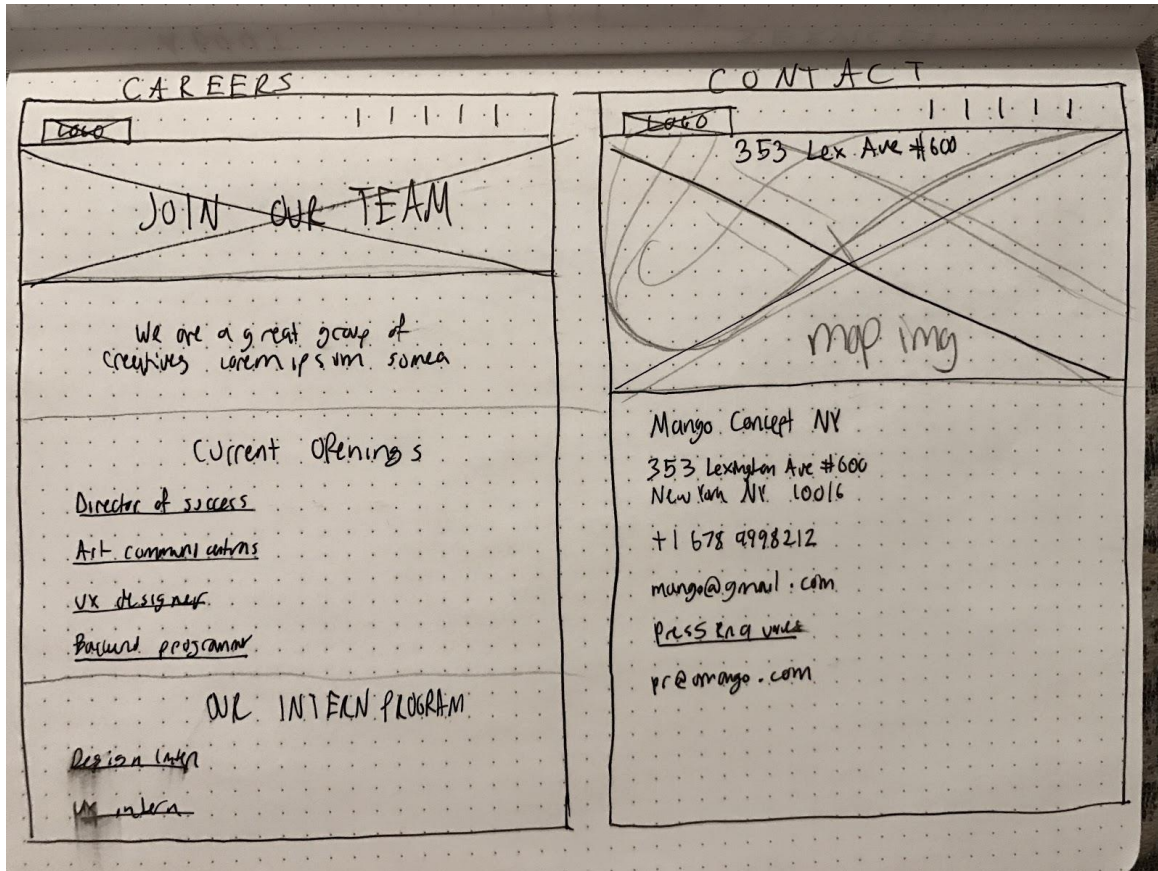 CAREERS
LOGO
JOIN OUR TEAM
We are a great group of
creatives lorem ipsum somea
Current Openings
Director of success
Art communications
UX designer
Backend programmer
OUR INTERN PROGRAM
Design Intern
UX intern
CONTACT
LOGO
353 Lex Ave #600
map img
Mango Concept NY
353 Lexington Ave #600
New York NY 10016
+1 678 9998212
mango@gmail.com
Press Enquires
pr@mango.com